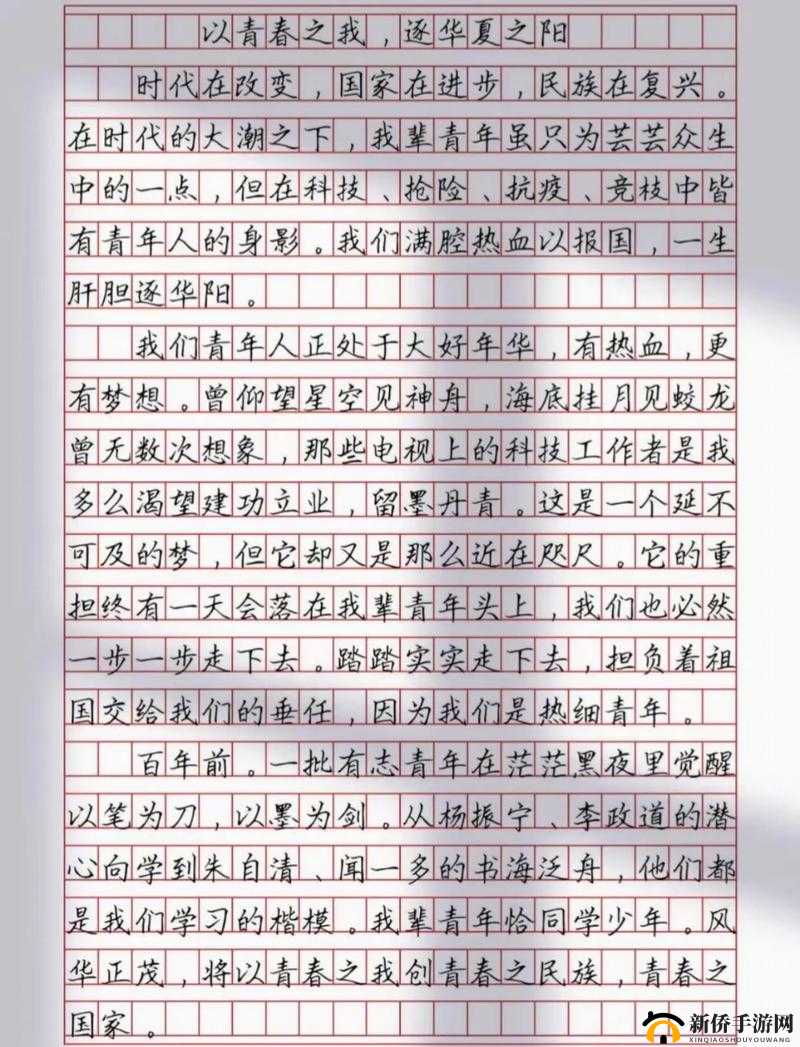 以青春之我，逐华夏之阳
时代在改变，国家在进步，民族在复兴。
在时代的大潮之下，我辈青年虽只为芸芸众生
中的一点，但在科技、抢险、抗疫、竞技中皆
有青年人的身影。我们满腔热血以报国，一生
肝胆逐华阳。
我们青年人正处于大好年华，有热血，更
有梦想。曾仰望星空见神舟，海底挂月见蛟龙
曾无数次想象，那些电视上的科技工作者是我
多么渴望建功立业，留墨丹青。这是一个延不
可及的梦，但它却又是那么近在咫尺。它的重
担终有一天会落在我辈青年头上，我们也必然
一步一步走下去。踏踏实实走下去，担负着祖
国交给我们的垂任，因为我们是热细青年。
百年前。一批有志青年在茫茫黑夜里觉醒
以笔为刀，以墨为剑。从杨振宁、李政道的潜
心向学到朱自清、闻一多的书海泛舟，他们都
是我们学习的楷模。我辈青年恰同学少年。风
华正茂，将以青春之我创青春之民族，青春之
国家。
新侨手游网
XINQIAOSHOUYOUWANG